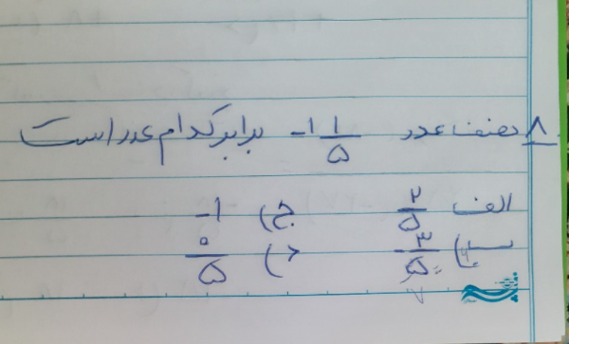 ۸ نصف عدد -۱ ۱/۵ برابر کدام عدد است
الف ۲/۵ ج) -۱
ب) -۳/۵ د) ۰/۵